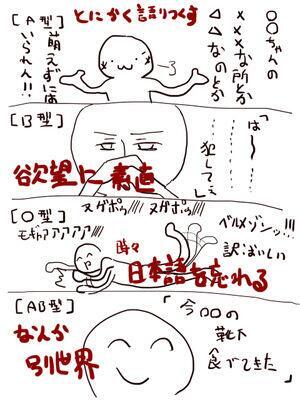 とにかく語りつくす
〇〇ちゃんの
×××な所とか
△△なのとか
[A型]
萌えずには
いられん!!
[B型]
は〜
犯してぇ
欲望に素直
[O型]
モギャアアアアア////
ヌガポゥ//// ヌガポゥ////
ベルメゾンッ!!!
訳ばいい
時々
日本語を忘れる
[AB型]
なんか
別世界
「今〇〇の
靴下
食べてきた」